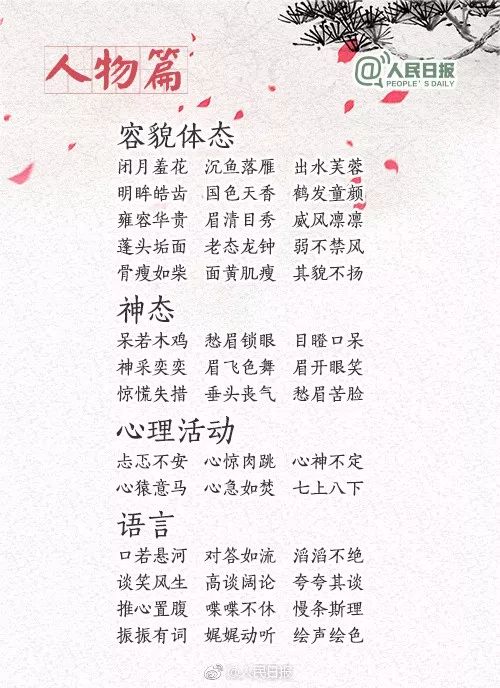 人物篇
@人民日报
PEOPLE'S DAILY
容貌体态
闭月羞花 沉鱼落雁 出水芙蓉
明眸皓齿 国色天香 鹤发童颜
雍容华贵 眉清目秀 威风凛凛
蓬头垢面 老态龙钟 弱不禁风
骨瘦如柴 面黄肌瘦 其貌不扬
神态
呆若木鸡 愁眉锁眼 目瞪口呆
神采奕奕 眉飞色舞 眉开眼笑
惊慌失措 垂头丧气 愁眉苦脸
心理活动
忐忑不安 心惊肉跳 心神不定
心猿意马 心急如焚 七上八下
语言
口若悬河 对答如流 滔滔不绝
谈笑风生 高谈阔论 夸夸其谈
推心置腹 喋喋不休 慢条斯理
振振有词 娓娓动听 绘声绘色
@人民日报